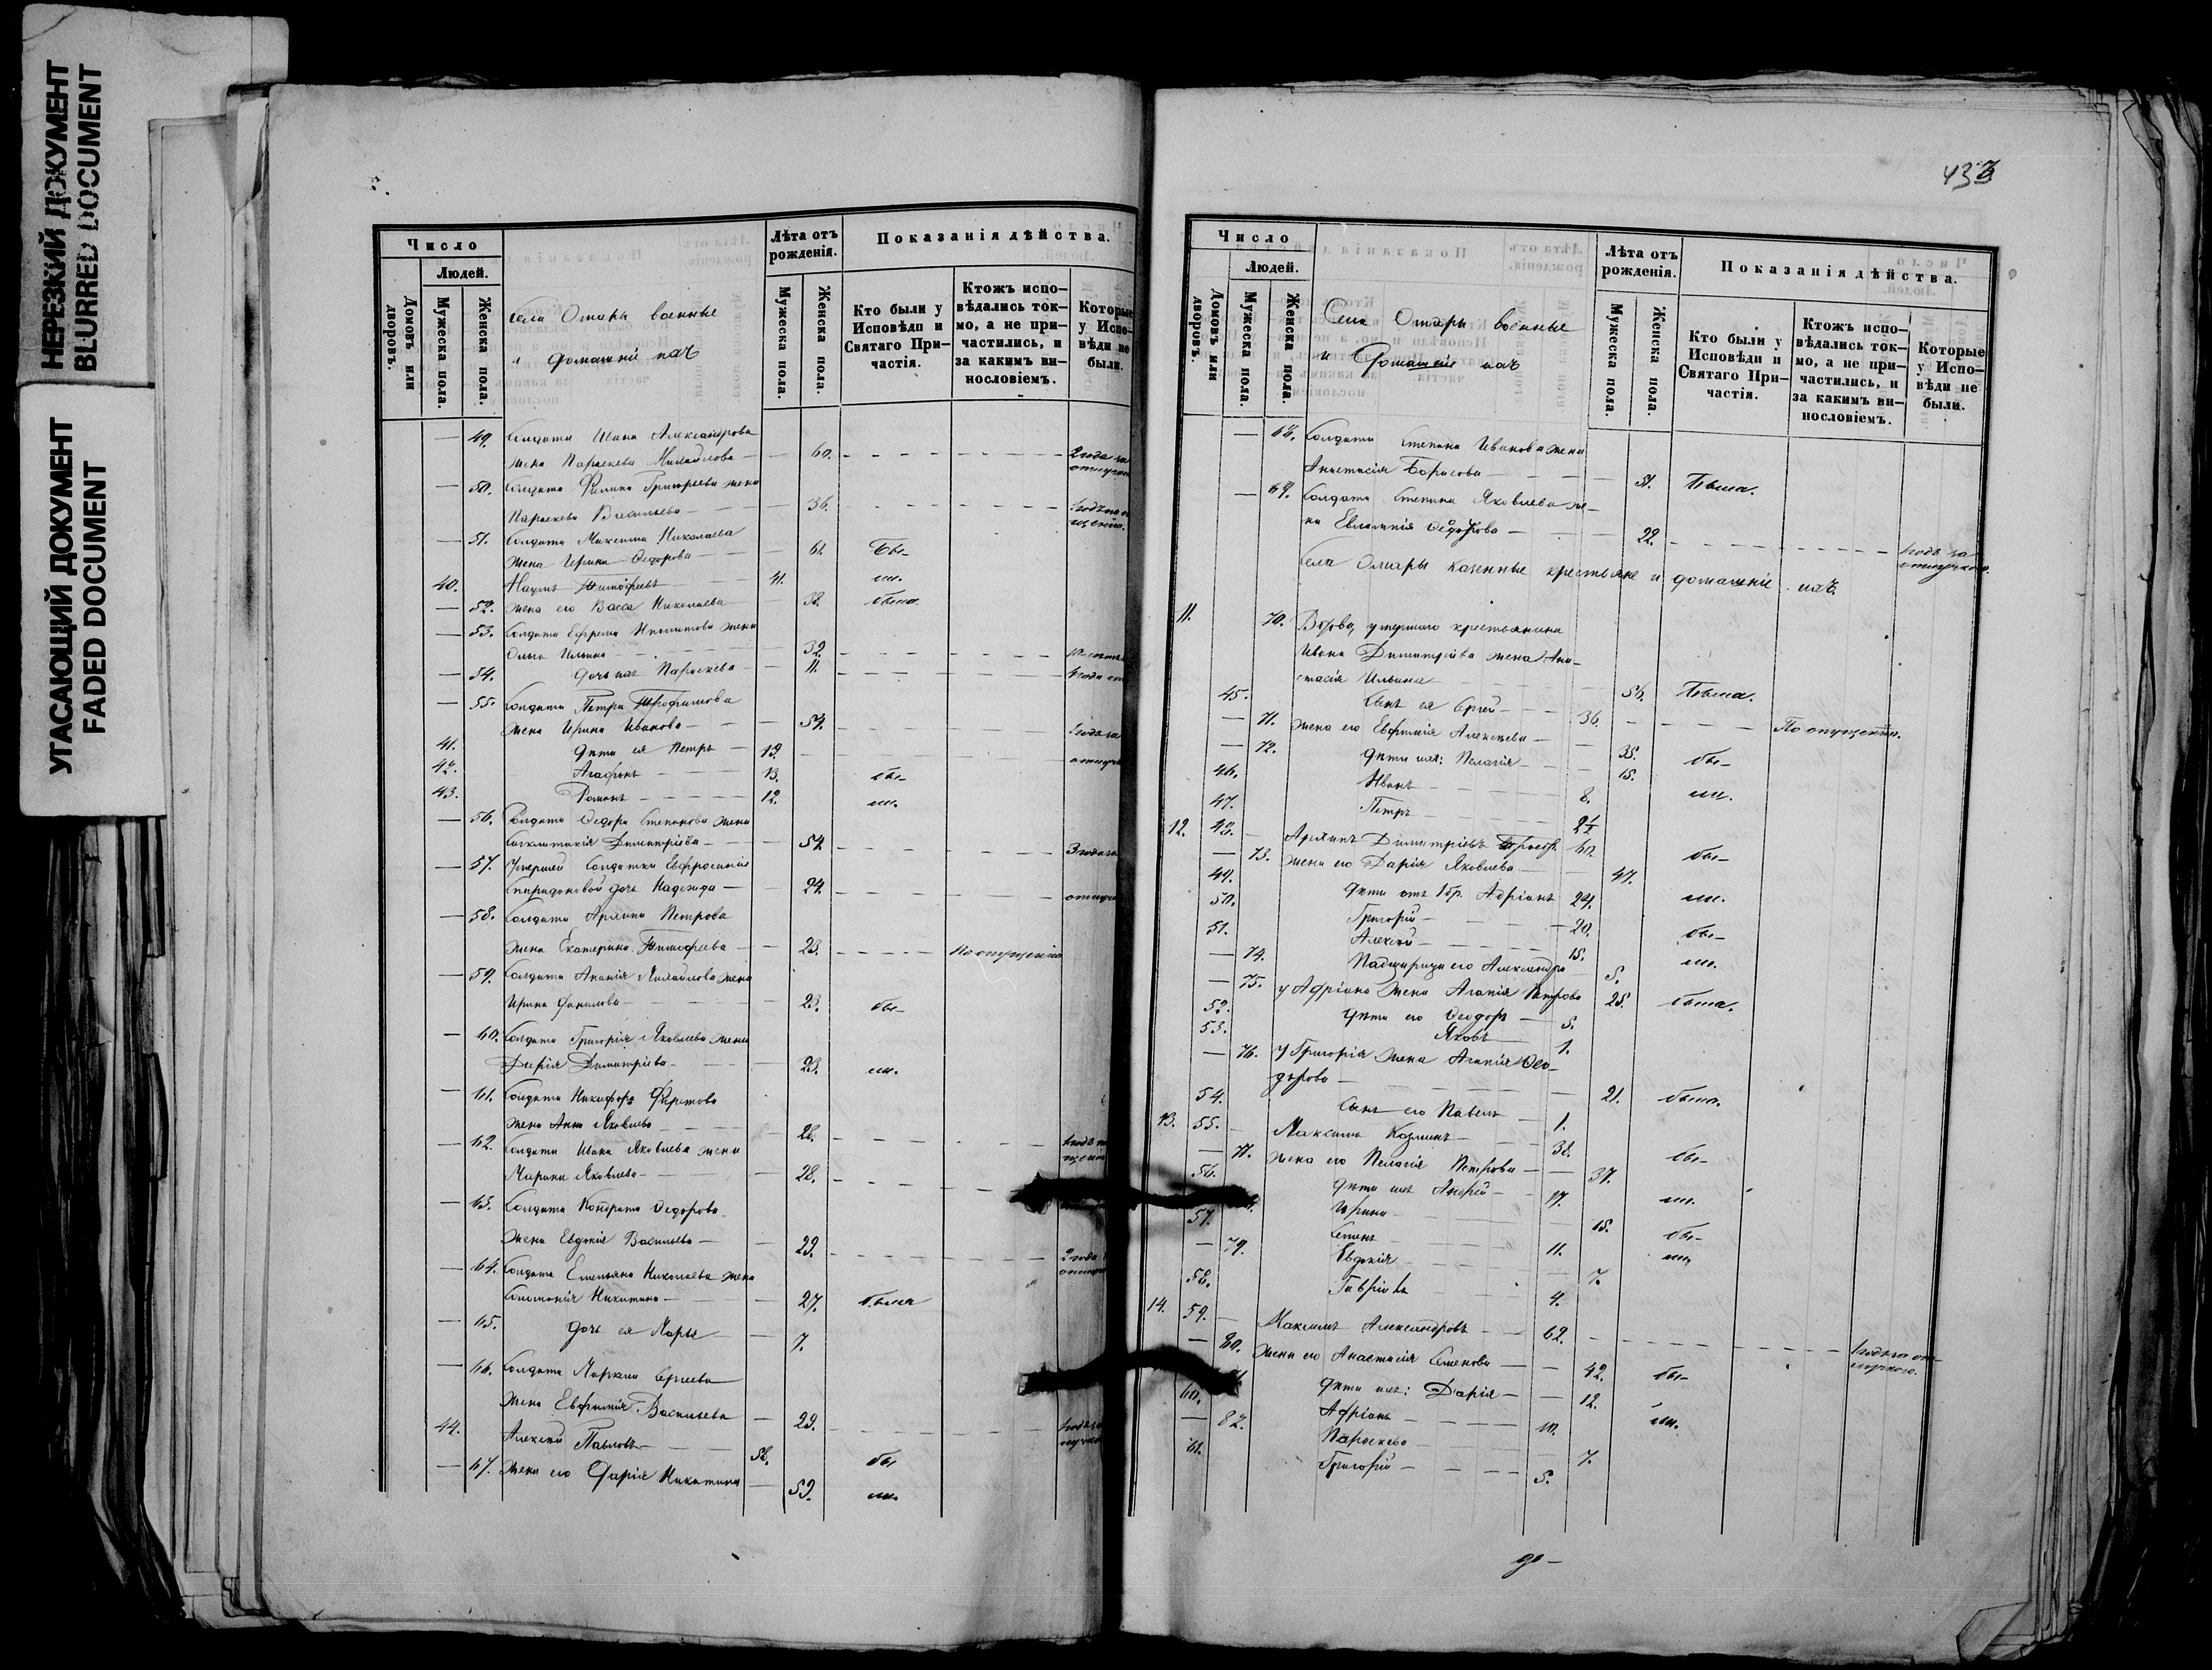 НЕРЕЗКИЙ ДОКУМЕНТ
BLURRED DOCUMENT
УГАСАЮЩИЙ ДОКУМЕНТ
FADED DOCUMENT
Число
Людей.
Домовъ или дворовъ.
Мужеска пола.
Женска пола.
Села Омары военные
и домашніе ихъ
Лѣта отъ рожденія.
Мужеска пола.
Женска пола.
Показанія дѣйства.
Кто были у Исповѣди и Святаго Причастія.
Ктожъ исповѣдались токмо, а не причастились, и за какимъ винословіемъ.
Которые у Исповѣди не были.
— 49. Солдата Ивана Александрова
жена Параскева Михайлова — 60. 2 года за
— 50. Солдата Филипа Григорьева жена
Параскева Васильева — 36.
— 51. Солдата Максима Николаева
жена Ирина Ѳедорова — 61. бы-
40. Наумъ Тимофѣевъ 41. ли.
— 52. жена его Васса Николаева — 38. была.
— 53. Солдата Ефрема Ипполитова жена
Ольга Ильина — 32.
— 54. дочь ихъ Параскева — 11.
— 55. Солдата Петра Трофимова
жена Ирина Иванова — 54. 1 годъ за
41. дѣти ея Петръ — 19.
42. Агафонъ 13. бы-
43. Романъ 12. ли.
— 56. Солдата Ѳедора Степанова жена
Синклитикія Димитріева — 54. 3 года за
— 57. Умершей солдатки Евфросиніи
Спиридоновой дочь Надежда — 24.
— 58. Солдата Архипа Петрова
жена Екатерина Тимофеева — 28. По опущенію
— 59. Солдата Ананія Михайлова жена
Ирина Данилова — 23. бы-
— 60. Солдата Григорія Яковлева жена
Дарія Димитріева — 23. ли.
— 61. Солдата Никифора
жена Анна Яковлева 26.
— 62. Солдата Ивана Яковлева жена
Марина Яковлева — 28.
— 63. Солдата Кондрата Ѳедорова
жена Евдокія Васильева — 29. 2 года
— 64. Солдата Емельяна Николаева жена
Соломонія Никитина — 27. была
— 65. дочь ея Марья 7.
— 66. Солдата Маркела Сергеева
жена Евфимія Васильева — 29.
44. Алексѣй Павловъ 58. бы
— 67. жена его Дарія Никитина 59. ли.
433
Число
Людей.
Домовъ или дворовъ.
Мужеска пола.
Женска пола.
Села Омары военные
и домашніе ихъ
Лѣта отъ рожденія.
Мужеска пола.
Женска пола.
Показанія дѣйства.
Кто были у Исповѣди и Святаго Причастія.
Ктожъ исповѣдались токмо, а не причастились, и за какимъ винословіемъ.
Которые у Исповѣди не были.
— 68. Солдата Степана Иванова жена
Анастасія Борисова — 51. Была.
— 69. Солдата Степана Яковлева же-
на Евлампія Ѳедорова — 22. 1 годъ за
отлучкою.
Села Омары казенные крестьяне и домашніе ихъ.
11. 70. Вдова, умершаго крестьянина
Ивана Димитріева жена Ана-
стасія Ильина 56. Была.
45. Сынъ ея Сергей — 36. По опущенію.
— 71. жена его Евфимія Алексѣева — 35. бы-
— 72. дѣти ихъ: Пелагія — 15.
46. Иванъ 8. ли.
47. Петръ
12. 48. Архипъ Димитріевъ 60. бы-
— 73. жена его Дарія Яковлева — 47.
49. дѣти отъ 1 бр. Адріанъ 24. ли.
50. Григорій — 20. бы-
51. Алексѣй — 15. ли.
— 74. Падчерица его Александра 5.
— 75. у Адріана жена Агапія Петрова 25. была.
52. дѣти его Ѳеодоръ — 5.
53. Яковъ 1.
— 76. у Григорія жена Агапія Ѳео-
дорова — 21. была.
54. Сынъ его Павелъ — 1.
13. 55. Максимъ Козминъ — 38. бы-
— 77. жена его Пелагія Петрова — 37.
56. дѣти ихъ Андрей — 17. ли.
Ирина 15. бы-
57. Семенъ 11. ли.
— 79. Евдокія 7.
58. Гавріилъ 4.
14. 59. Максимъ Александровъ — 62. 1 годъ за от-
лучкою.
— 80. жена его Анастасія Семенова — 42. бы-
дѣти ихъ: Дарія — 12.
60. Адріанъ 10. ли.
— 82. Параскева 7.
61. Григорій — 5.